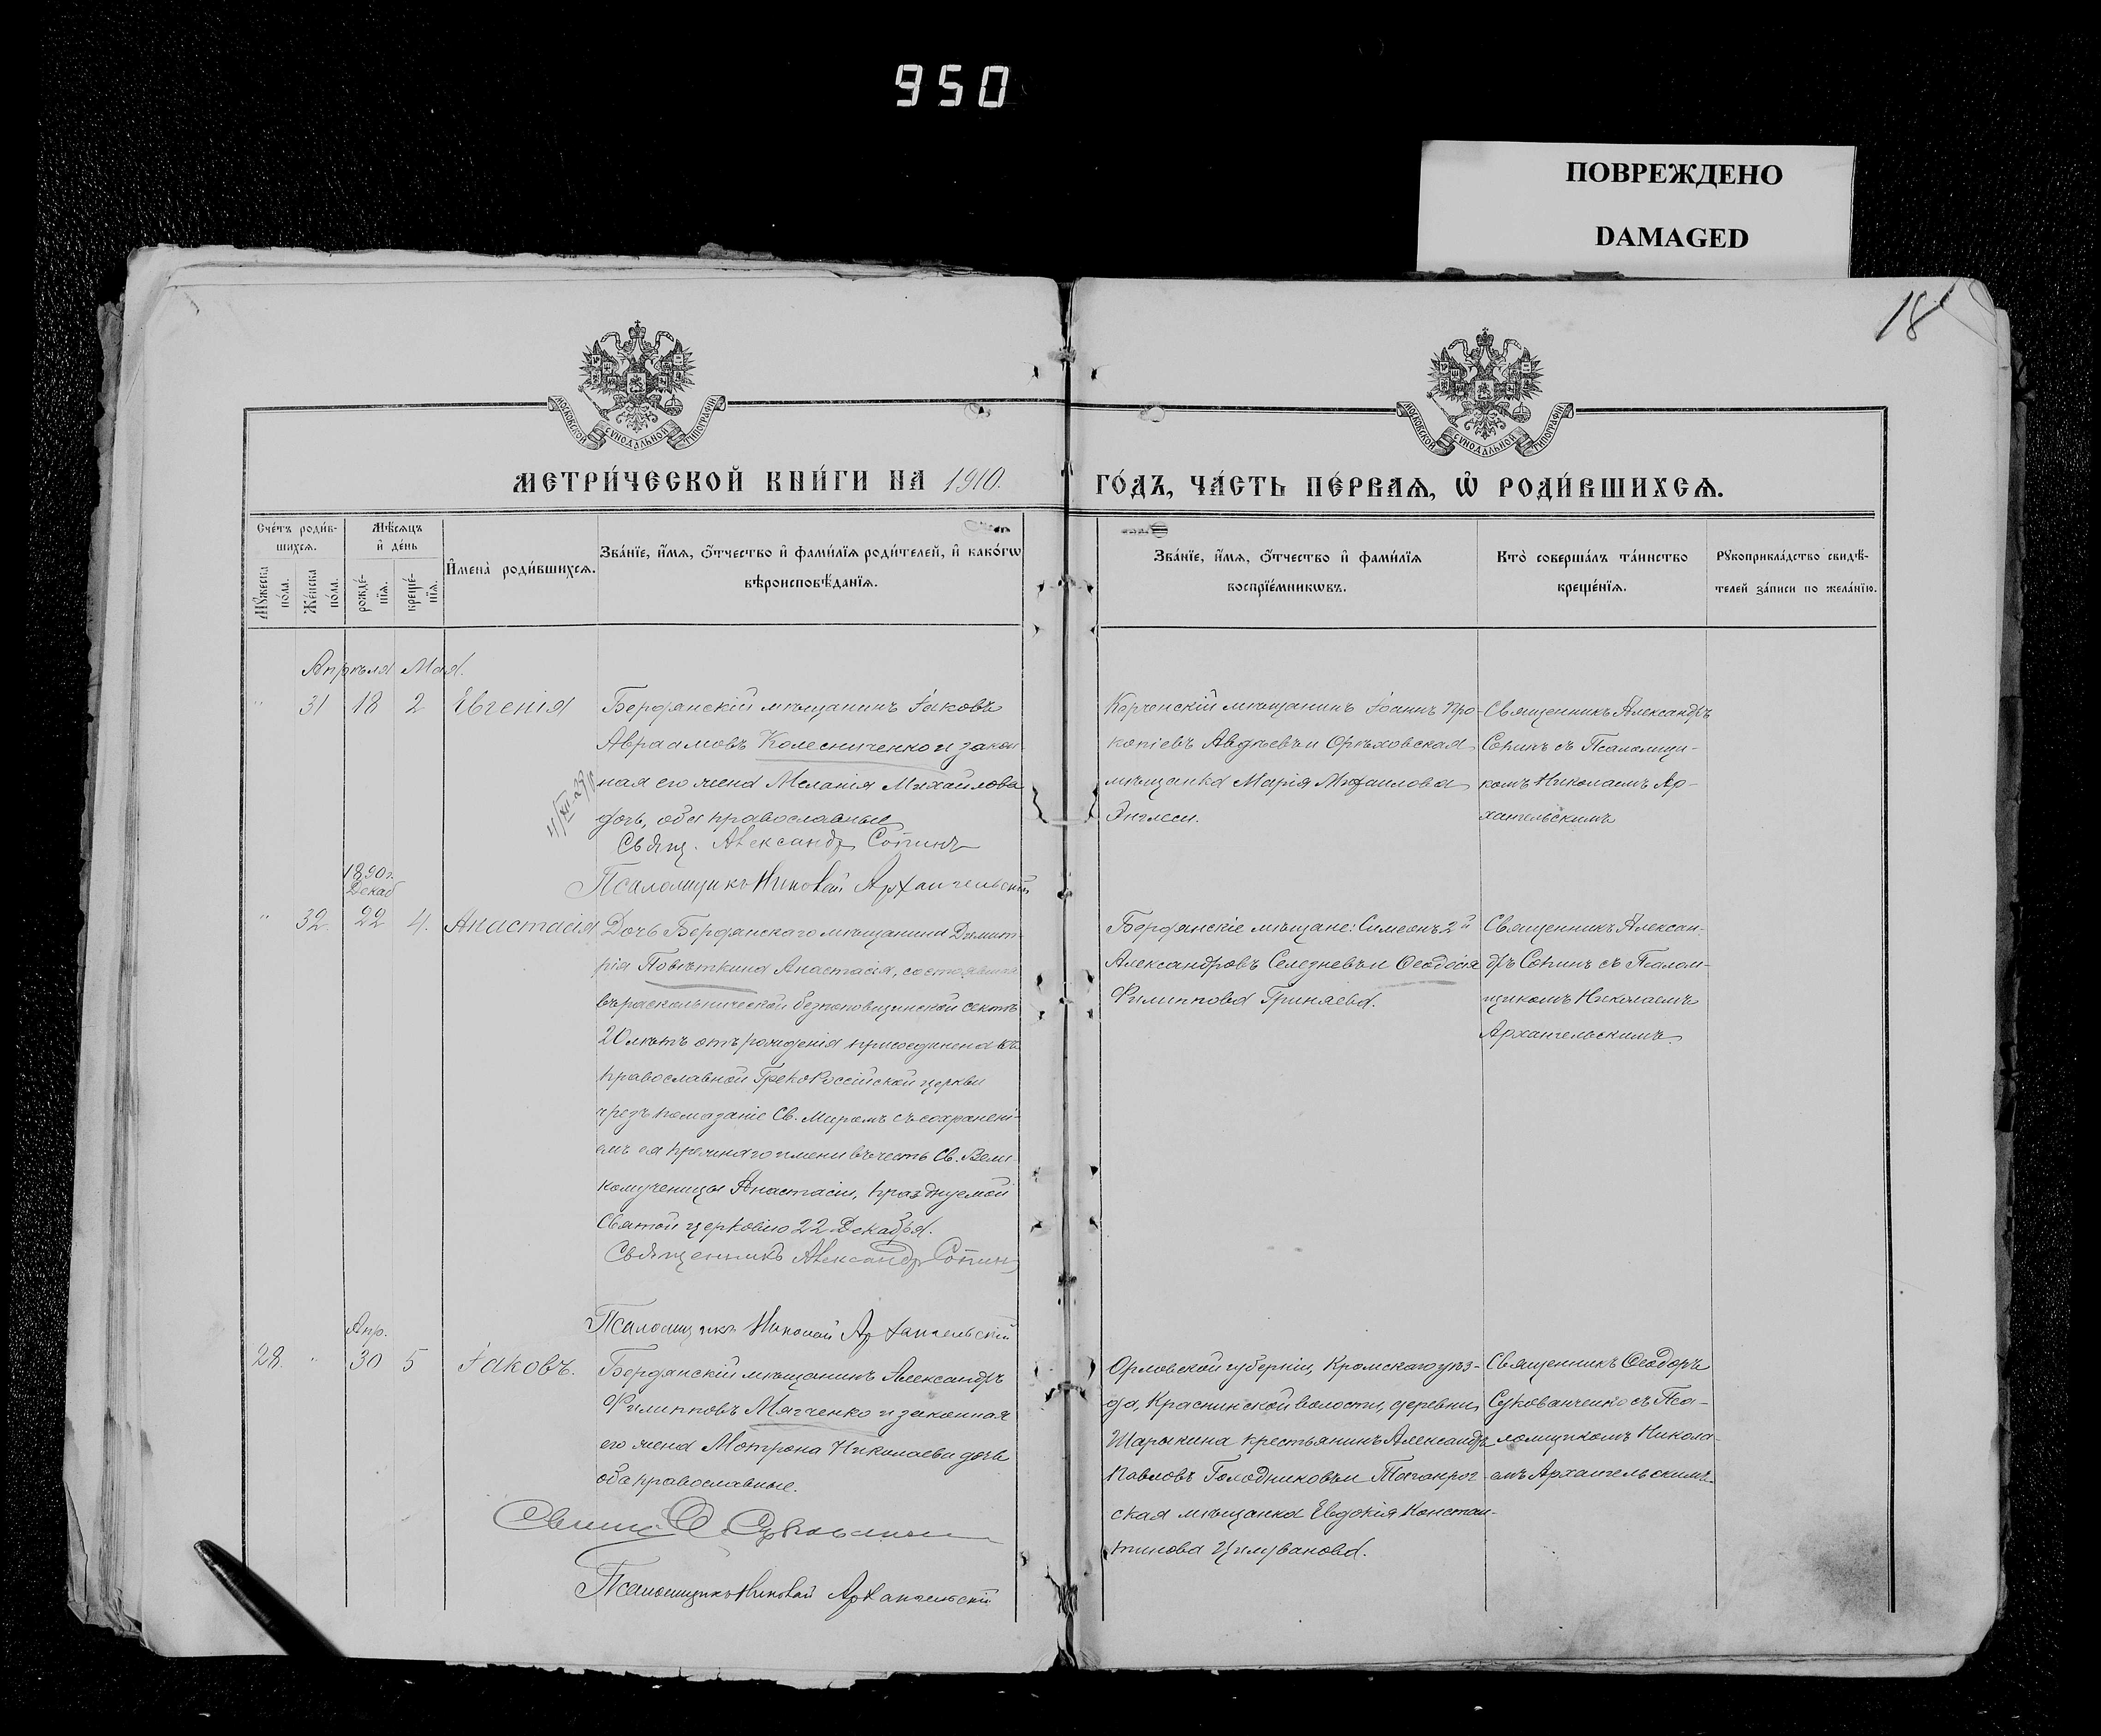 950
ПОВРЕЖДЕНО
DAMAGED
18
МОСКОВСКОЙ СѴНОДАЛЬНОЙ ТИПОГРАФІИ
МОСКОВСКОЙ СѴНОДАЛЬНОЙ ТИПОГРАФІИ
МЕТРИ́ЧЕСКОЙ КНИ́ГИ НА 1910.
ГО́ДЪ, ЧА́СТЬ ПЕ́РВАѦ, Ѡ҆ РОДИ́ВШИХСѦ.
Сче́тъ роди́в-
шихсѧ.
Мꙋ́жеска по́ла.
Же́нска по́ла.
Мѣ́сѧцъ
и҆ де́нь
рожде́-
нїѧ.
креще́-
нїѧ.
И҆мена̀ роди́вшихсѧ.
Зва́нїе, и҆́мѧ, ѻ҆́тчество и҆ фами́лїѧ роди́телей, и҆ како́гѡ
вѣроисповѣ́данїѧ.
Зва́нїе, и҆́мѧ, ѻ҆́тчество и҆ фами́лїѧ
воспрїе́мникѡвъ.
Кто̀ соверша́лъ та́инство
креще́нїѧ.
Рꙋкоприкла́дство свидѣ́-
телей за́писи по жела́нїю.
Апрѣля Мая.
" 31 18 2 Евгенія
Бердянскій мѣщанинъ Іаковъ
Авраамовъ Колесниченко и закон
ная его жена Меланія Михайлова
дочь, оба православные
Свящ. Александр Сопинъ
Псаломщикъ Николай Архангельскій
Керченскій мѣщанинъ Іоаннъ Про-
копіевъ Авдѣевъ и Орѣховская
мѣщанка Марія Михаилова
Энглеси.
Священникъ Александръ
Сопинъ съ Псаломщи-
комъ Николаемъ Ар-
хангельскимъ
1890 г.
Декаб
" 32. 22 4. Анастасія
Дочь Бердянскаго мѣщанина Димит-
рія Повѣткина Анастасія, состоявшая
въ раскольнической безпоповщинской сектѣ
20 лѣтъ отъ рожденія присоединена къ
православной Греко Россійской церкви
чрезъ помазаніе Св. Миромъ съ сохранені-
емъ ея прежняго имени въ честь Св. Вели
комученицы Анастасіи, празднуемой
Святой церковію 22 Декабря.
Священникъ Александр Сопин
Псаломщикъ Николай Архангельскій
Бердянскіе мѣщане: Симеонъ 2й
Александровъ Селезневъ и Ѳеодосія
Филиппова Гриняева.
Священникъ Алексан-
дръ Сопинъ съ Псалом-
щикомъ Николаемъ
Архангельскимъ.
Апр.
28. " 30 5 Іаковъ.
Бердянскій мѣщанинъ Александръ
Филипповъ Мягченко и законная
его жена Мотрона Николаева дочь
оба православные.
Псаломщикъ Николай Архангельскій
Орловской губерніи, Кромскаго уѣз-
да, Краснинской волости, деревни
Шарыкина крестьянинъ Александръ
Павловъ Голодниковъ и Таганрог-
ская мѣщанка Евдокія Констан-
тинова Цилуванова.
Священникъ Ѳеодоръ
Сукованченко съ Пса-
ломщикомъ Никола-
емъ Архангельскимъ.